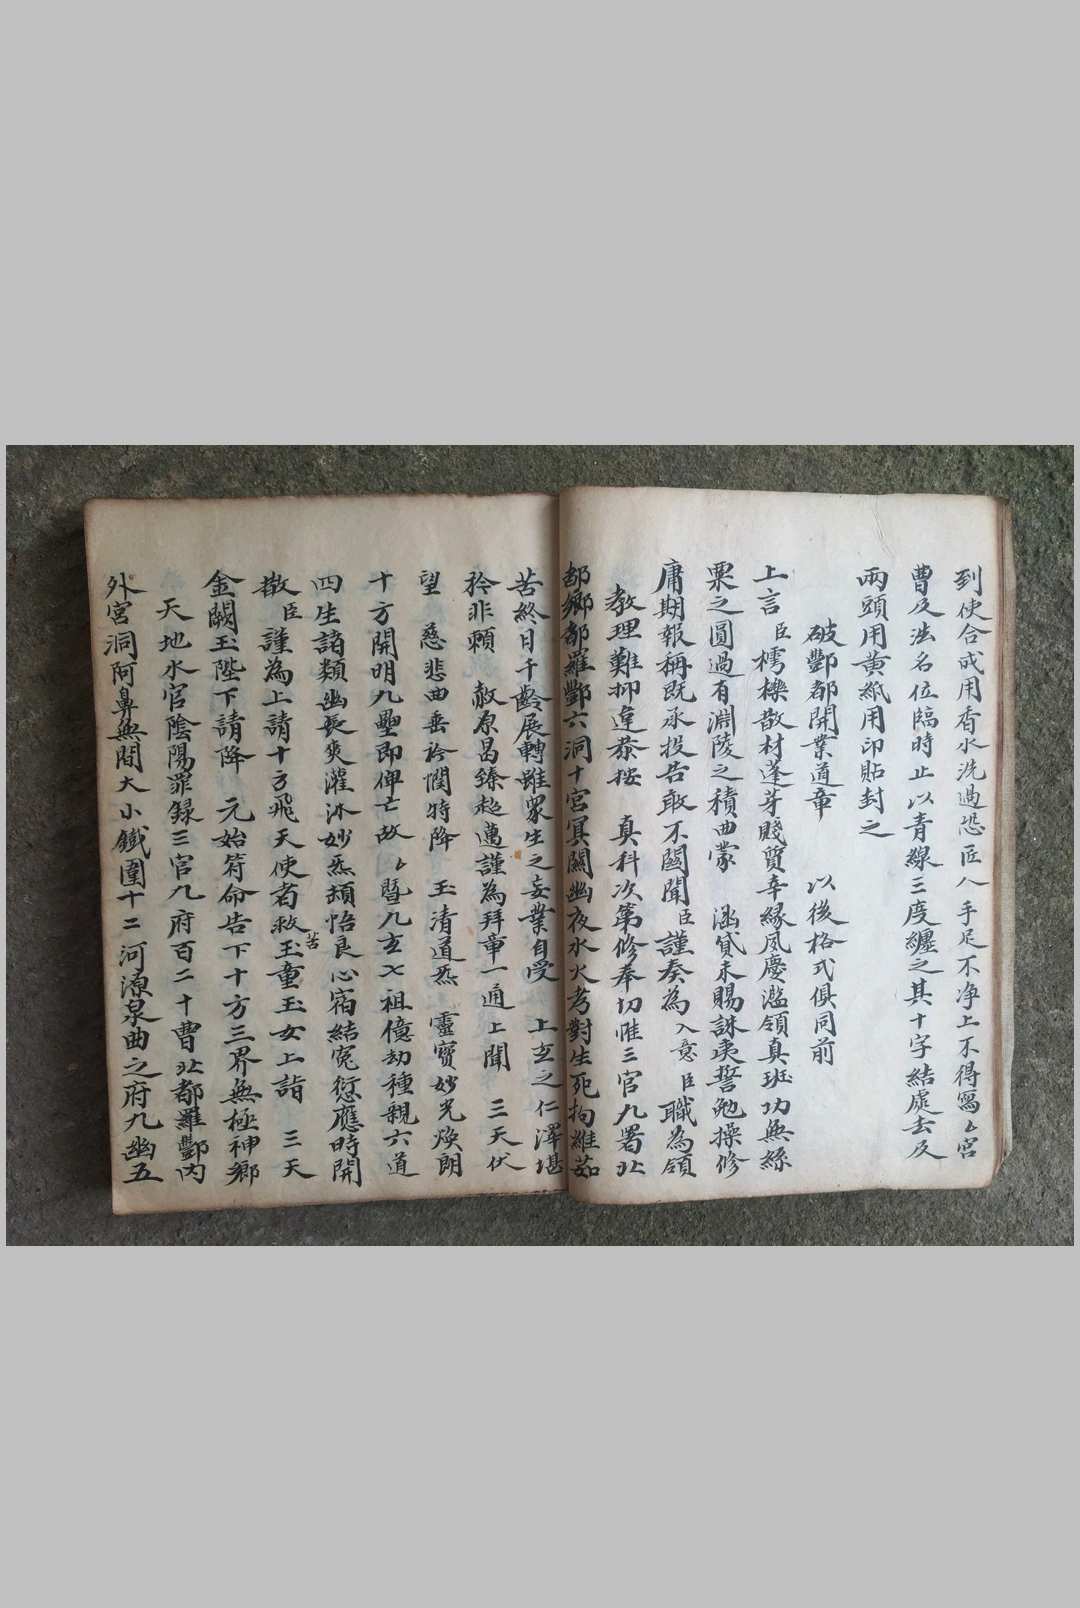 到使合或用香水洗過恐匠人手足不净上不得寫々宮
曹及法名位臨時止以青線三度纏之其十字結處去及
兩頭用黄紙用印貼封之
破酆都開業道章 以後格式俱同前
上言臣樗櫟散材蓬芽賤質幸緣夙慶濫領真班功無絲
粟之圓過有淵陵之積曲蒙 涵貸未賜誅夷誓勉操修
庸期報稱既承投告敢不闗聞臣謹奏為入意臣職為領
教理難抑違恭按 真科次第修奉切惟三官九署北
都鄉都羅酆六洞十宮冥關幽夜水火考對生死拘維茹
苦終日千齡展轉雖衆生之妄業自受 上玄之仁澤堪
矜非賴 赦原曷臻超邁謹為拜章一通上聞 三天伏
望 慈悲曲垂衿憫特降 玉清道炁 靈寳妙光煥朗
十方開明九壘即俾亡故々暨九玄七祖億劫種親六道
四生諸類幽長爽濯沐妙炁頓怡良心宿結寃愆應時開
散臣謹為上請十方飛天使者救苦玉童玉女上詣 三天
金闕玉陛下請降 元始符命告下十方三界無極神鄉
天地水官陰陽罪録三官九府百二十曹北都羅酆内
外宮洞阿鼻無間大小鐵圍十二河源泉曲之府九幽五